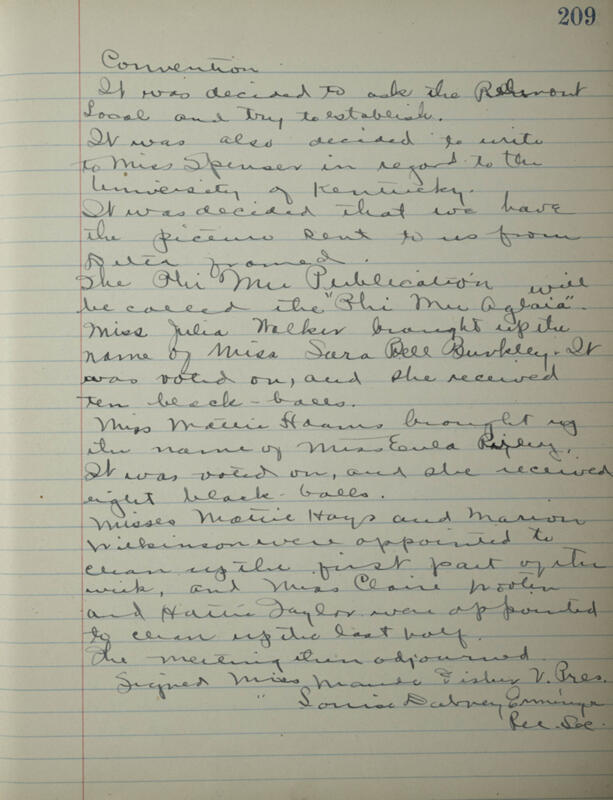 209
Convention
It was decided to ask the Belmont
Local and try to establish.
It was also decided to write
to Miss Spenser in regard to the
University of Kentucky.
It was decided that we have
the picture sent to us from
Delta framed.
The Phi Mu Publication will
be called the "Phi Mu Aglaia".
Miss Julia Walker brought up the
name of Miss Sara Bell Burkley. It
was voted on, and she received
ten black-balls.
Miss Mattie brought up
the name of Miss Eula Ripley.
It was voted on, and she received
eight black-balls.
Misses Mattie Hays and Marion
Wilkinson were appointed to
clean up the first part of the
week, and Miss Claire
and Hattie Taylor were appointed
to clean up the last half.
The meeting then adjourned.
Signed Miss Maude Fisher V. Pres.
" Louise Dabney
Rec. Sec.